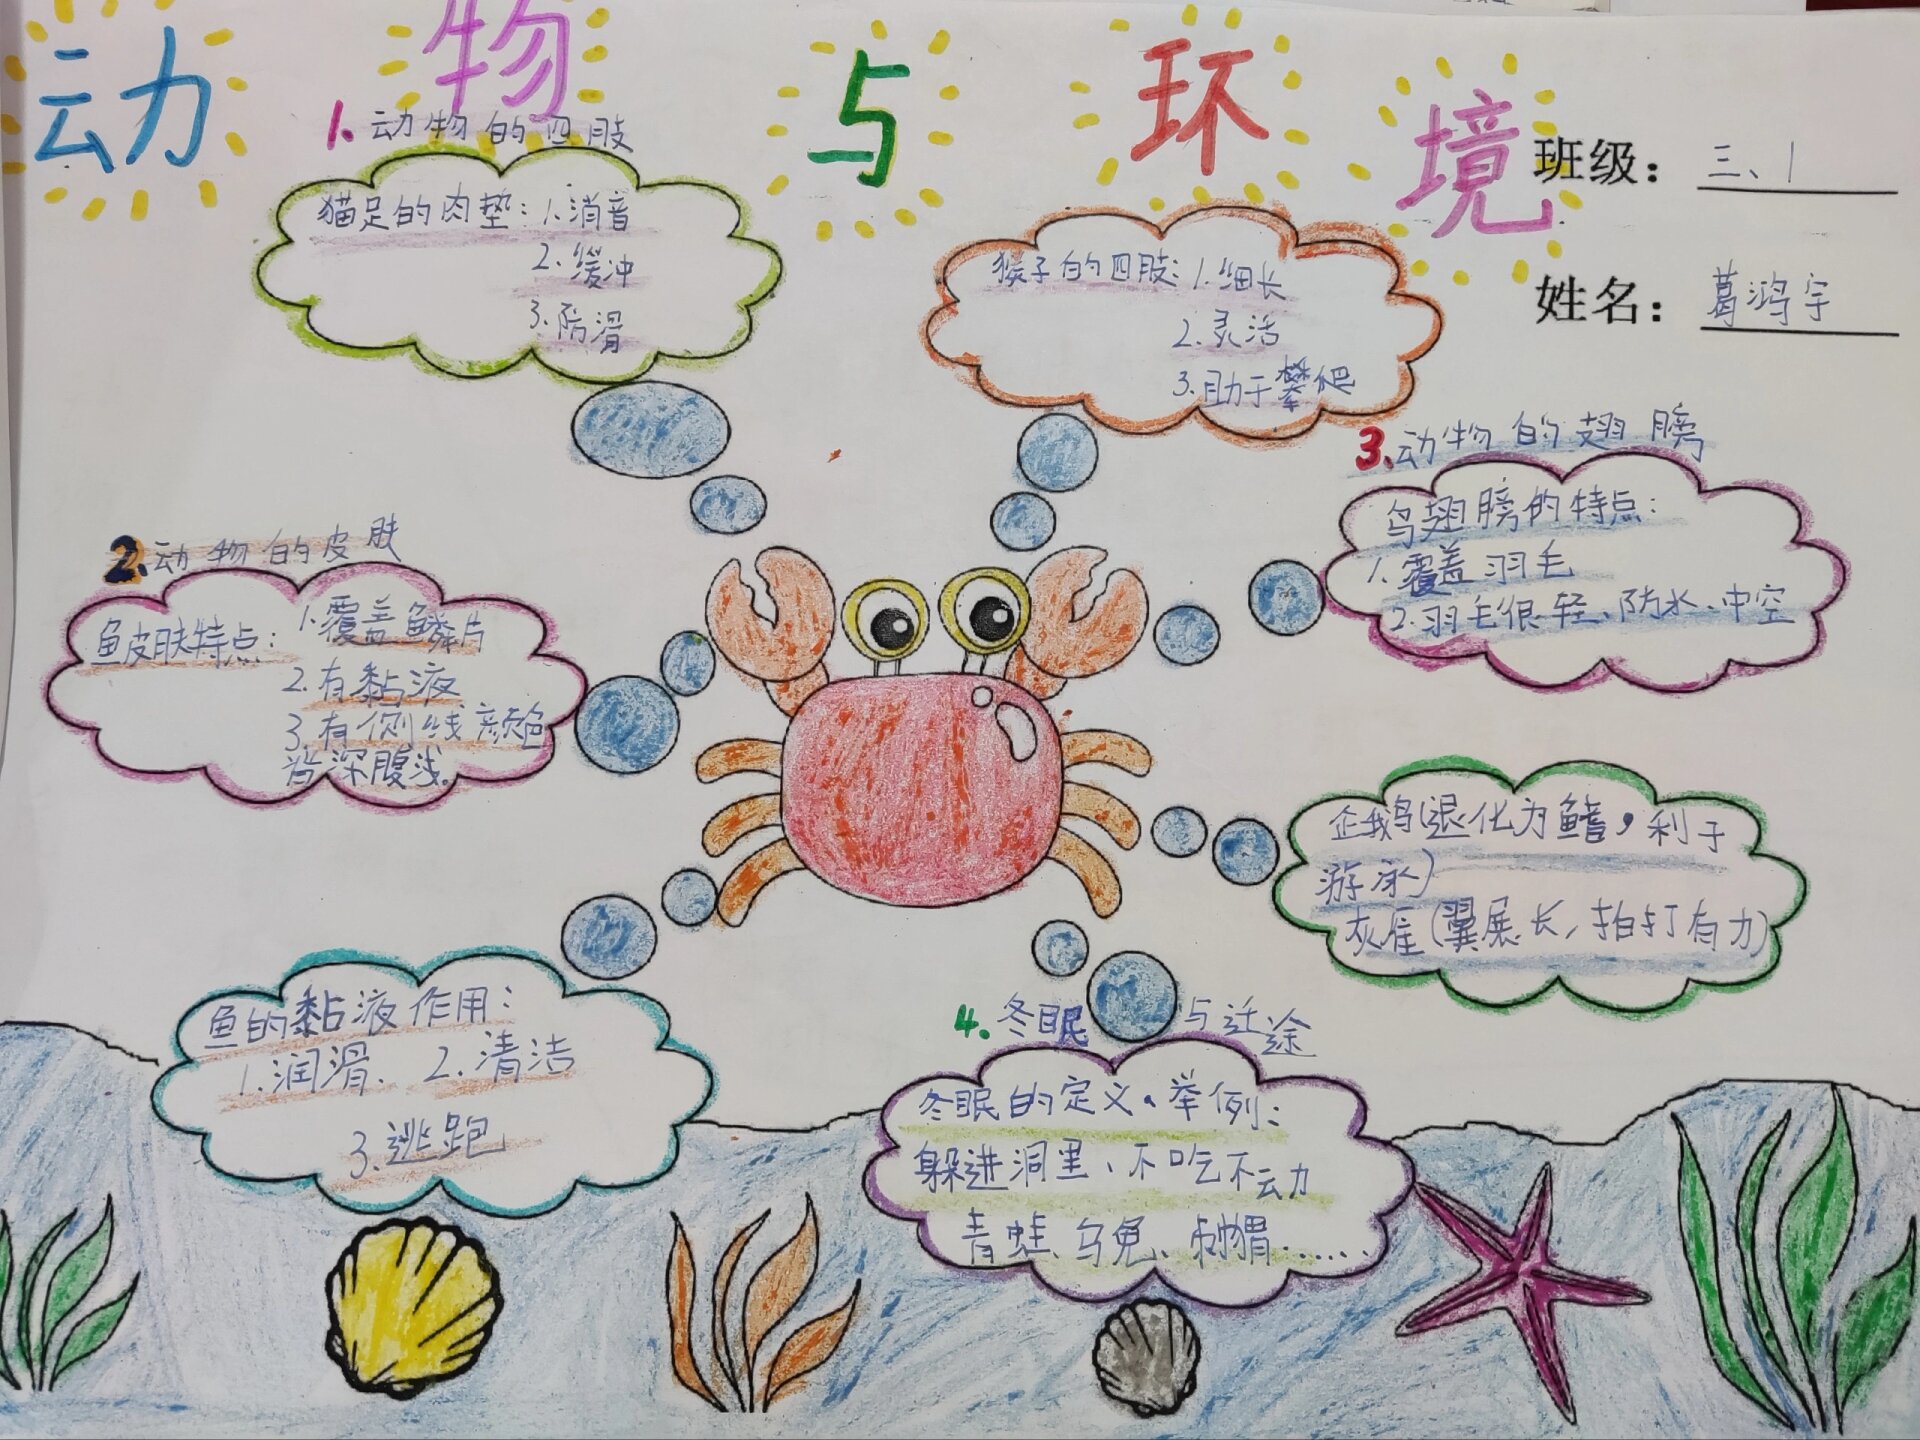 动物与环境
班级：三、1
姓名：葛鸿宇
1、动物的四肢
猫足的肉垫：1.消音
2.缓冲
3.防滑
猴子的四肢：1.细长
2.灵活
3.助于攀爬
2、动物的皮肤
鱼皮肤特点：1.覆盖鳞片
2.有黏液
3.有侧线颜色
背深腹浅。
鱼的黏液作用：
1.润滑、2.清洁
3.逃跑
3、动物的翅膀
鸟翅膀的特点：
1.覆盖羽毛
2.羽毛很轻、防水、中空
企鹅(退化为鳍，利于
游泳)
灰雁(翼展长，拍打有力)
4.冬眠与迁途
冬眠的定义、举例：
躲进洞里、不吃不动
青蛙、乌龟、刺猬……